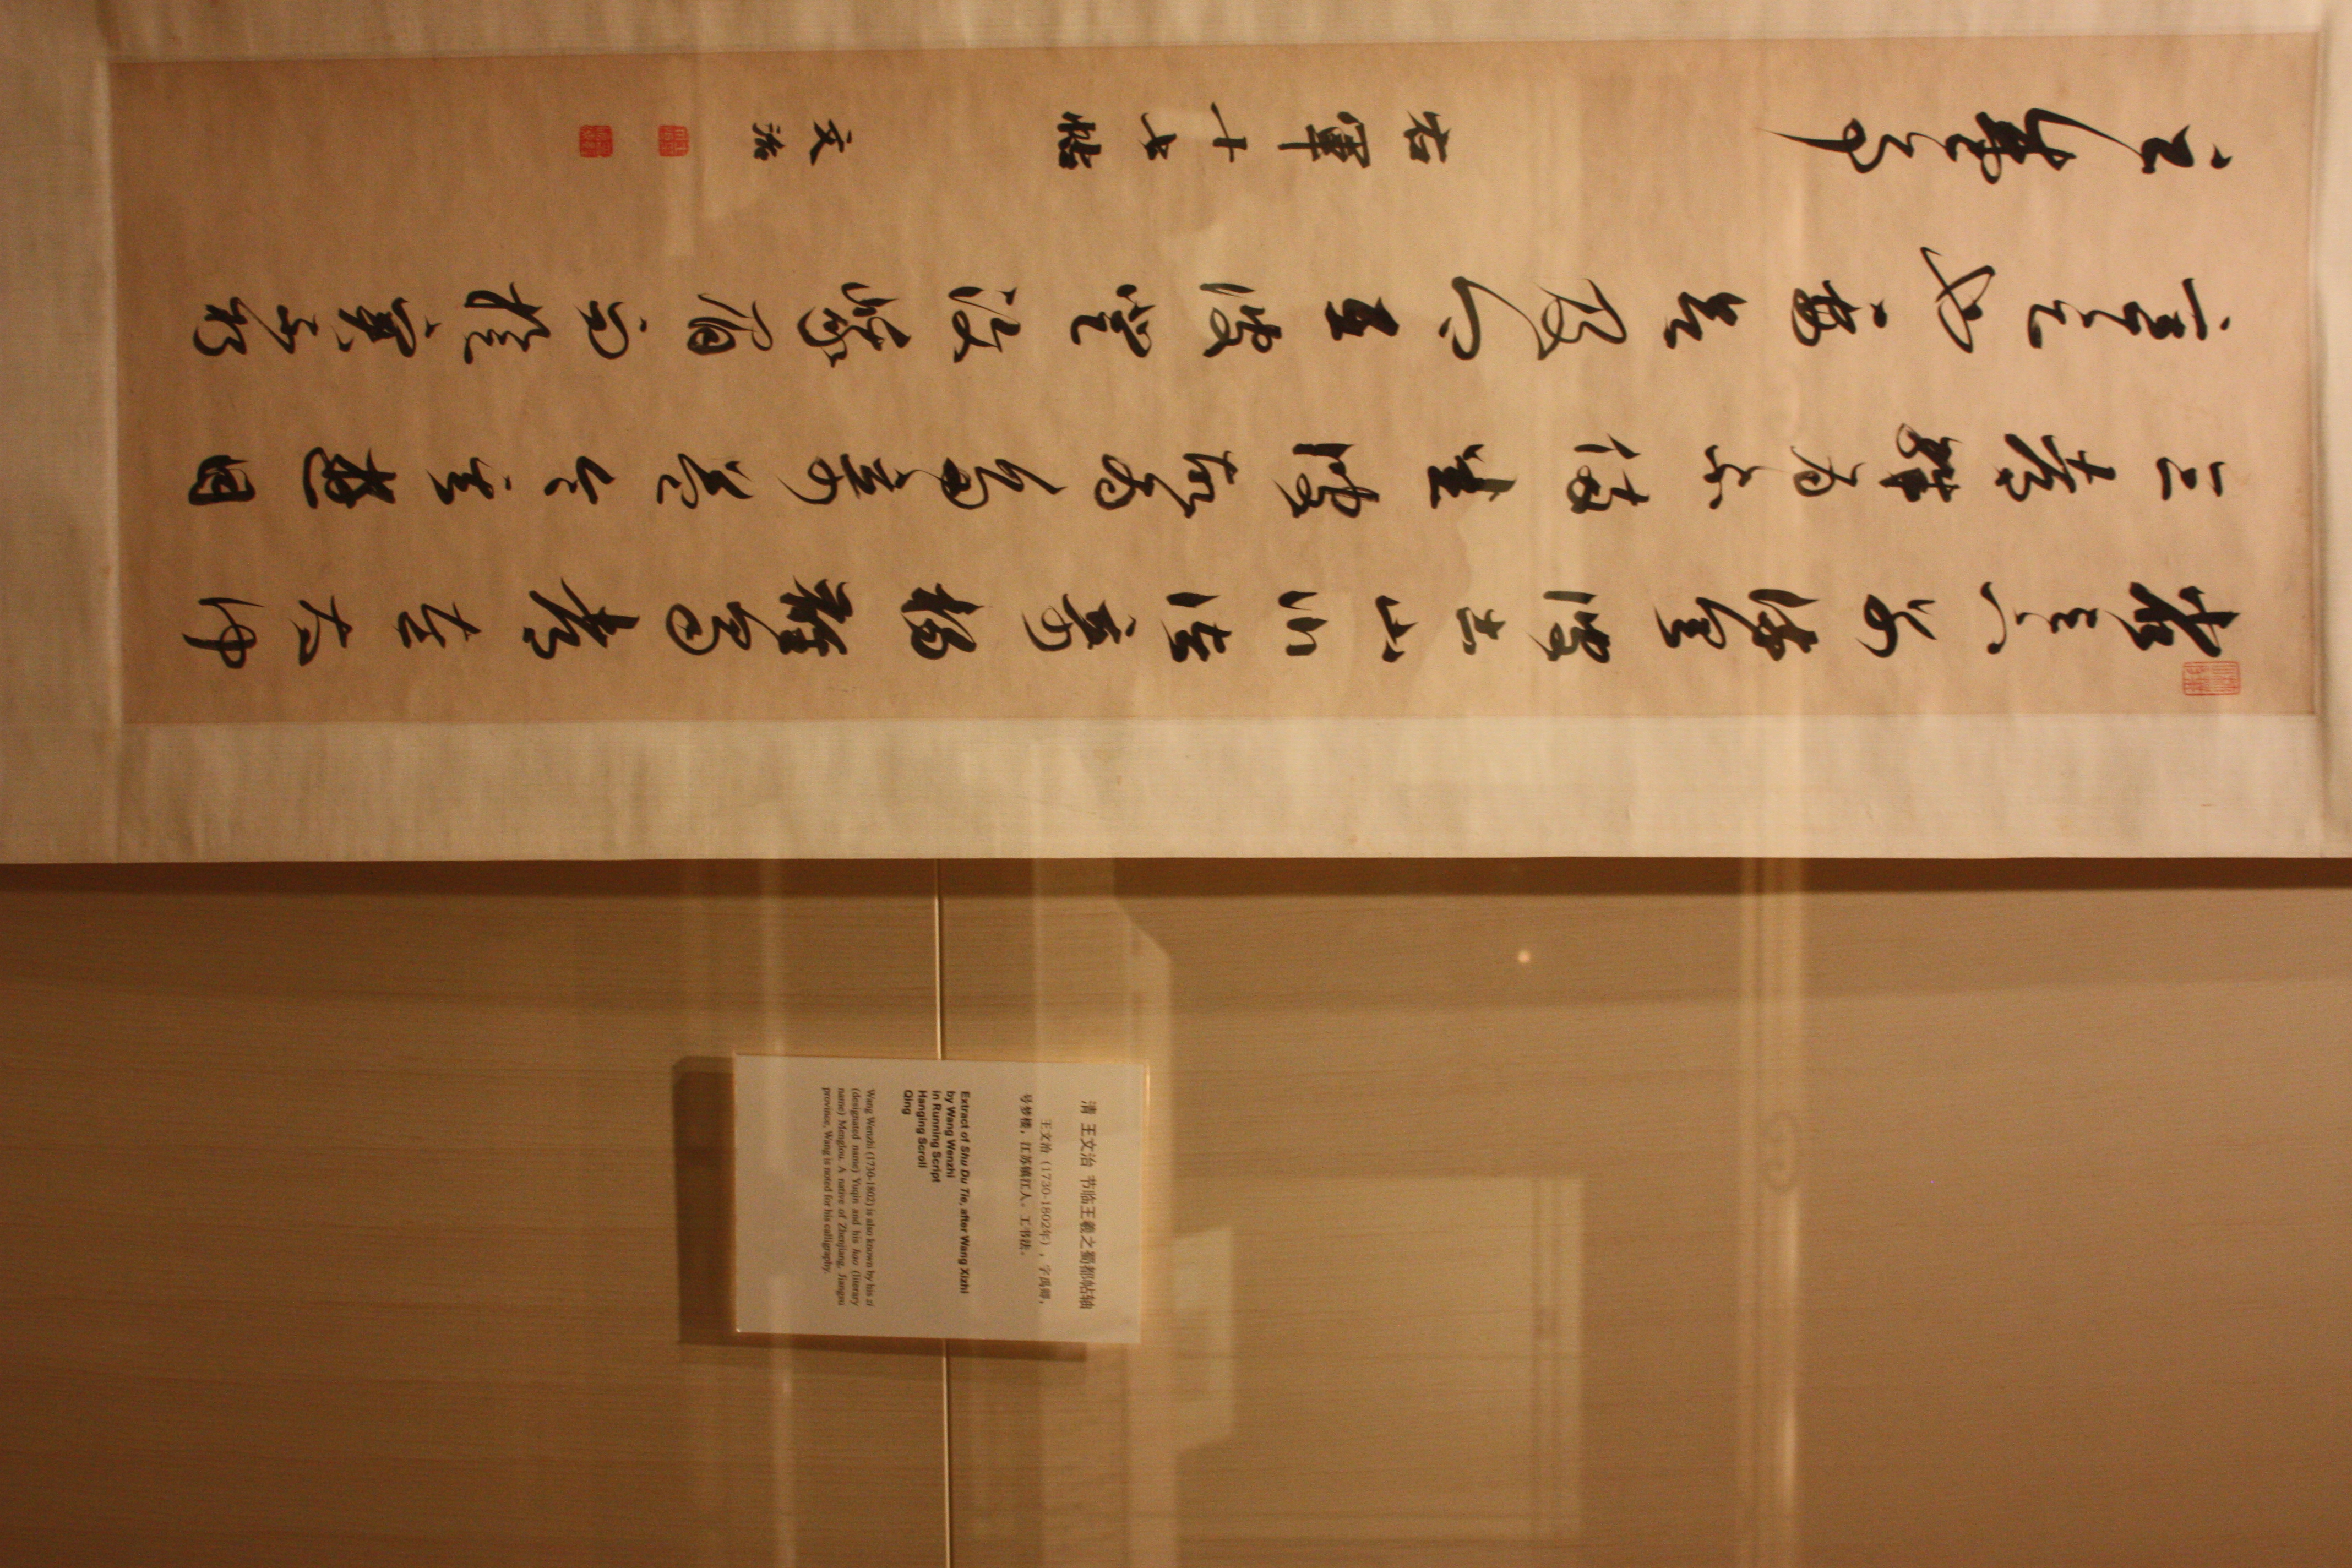 省足下别疏具彼土山川諸奇揚雄蜀都左太沖
三都殊為不備悉彼故為多奇益令其遊目
意足也要欲及卿在彼登汶眉而旋實不朽
之盛事
右軍十七帖
文治
清 王文治 节临王羲之蜀都帖轴
王文治（1730-1802年），字禹卿，
号梦楼，江苏镇江人。工书法。
Extract of Shu Du Tie, after Wang Xizhi
by Wang Wenzhi
in Running Script
Hanging Scroll
Qing
Wang Wenzhi (1730-1802) is also known by his zi
(designated name) Yuqin and his hao (literary
name) Menglou. A native of Zhenjiang, Jiangsu
province, Wang is noted for his calligraphy.